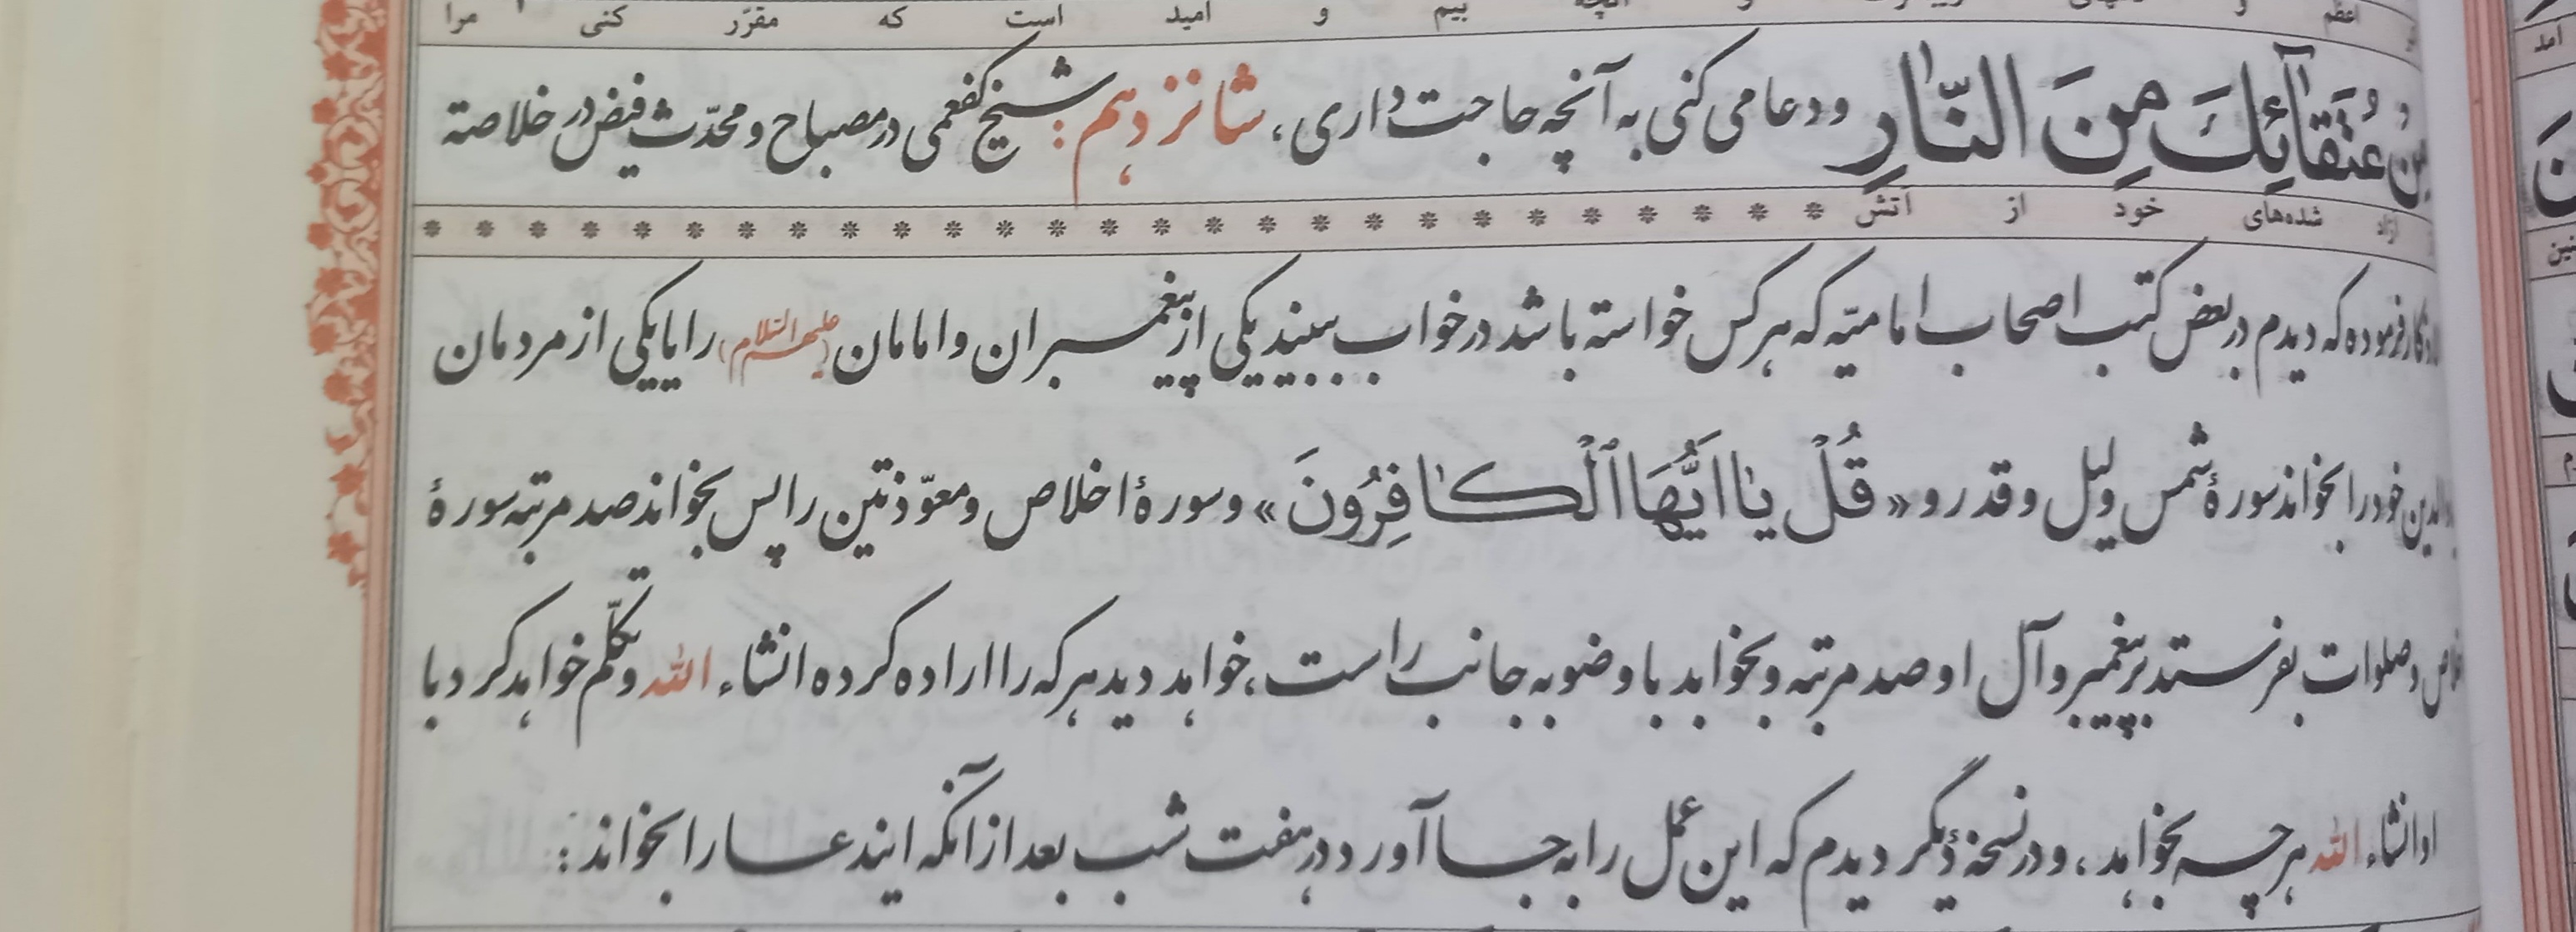 اعظم و و آنچه بیم و امید است که مقرّر کنی مرا
عُتَقآئِكَ مِنَ النّارِ و دعا می کنی به آنچه حاجت داری، شانزدهم: شیخ کفعمی در مصباح و محدّث فیض در خلاصة
آزاد شده‌های خود از آتش
الاذکار فرموده که دیدم در بعض کتب اصحاب امامیّه که هر کس خواسته باشد در خواب ببیند یکی از پیغمبران و امامان (علیهم السّلام) را یا یکی از مردمان
یا والدین خود را بخواند سورۀ شمس و لیل و قدر و «قُلْ یٰا اَیُّهَا ٱلْکٰافِرُونَ» و سورۀ اخلاص و معوّذتین را پس بخواند صد مرتبه سورۀ
اخلاص و صلوات بفرستد بر پیغمبر و آل او صد مرتبه و بخوابد با وضو به جانب راست، خواهد دید هر که را اراده کرده انشاء الله و تکلّم خواهد کرد با
او انشاء الله هر چه بخواهد، و در نسخۀ دیگر دیدم که این عمل را به جا آورد در هفت شب بعد از آنکه ایندعا را بخواند: